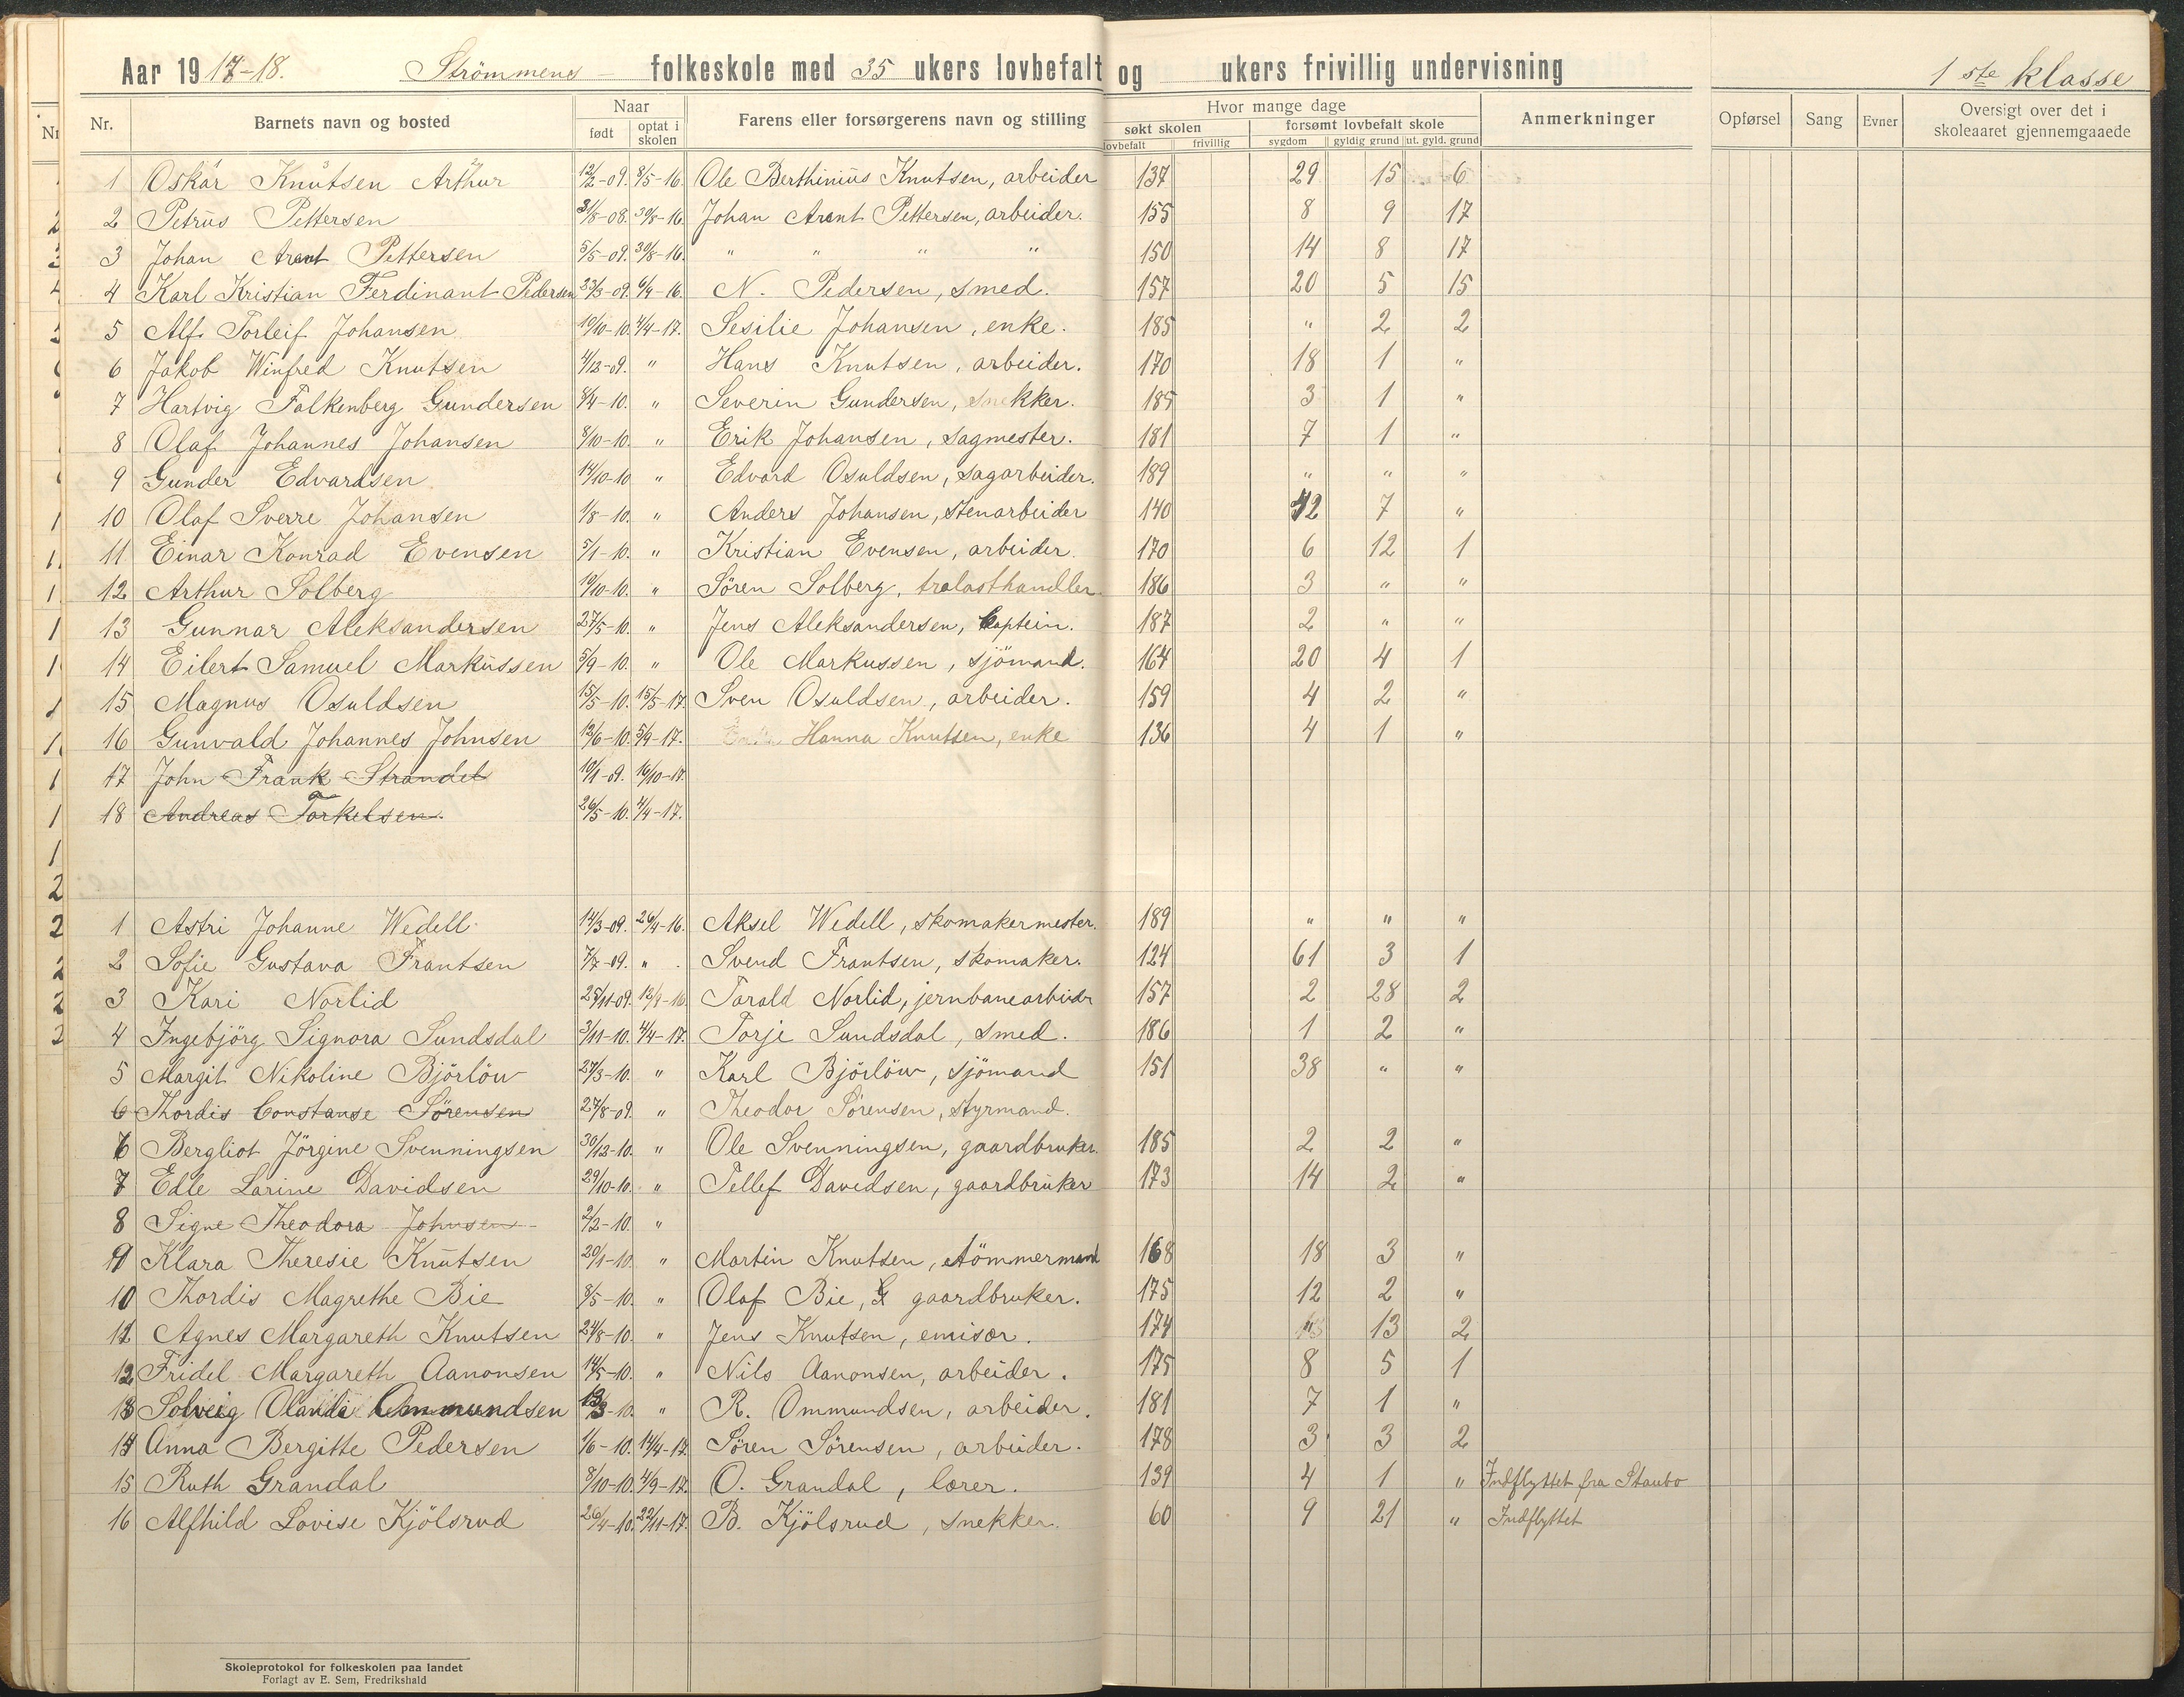 Aar 1917-18. Strömmens folkeskole med 35 ukers lovbefalt og ukers frivillig undervisning 1ste klasse
Nr. Barnets navn og bosted Naar født optat i skolen Farens eller forsørgerens navn og stilling Hvor mange dage søkt skolen lovbefalt frivillig forsømt lovbefalt skole sygdom gyldig grund ut. gyld. grund Anmerkninger Opførsel Sang Evner Oversigt over det i skoleaaret gjennemgaaede
1 Oskar Knutsen Arthur 12/2-09. 8/5-16. Ole Berthinius Knutsen, arbeider 137 29 15 6
2 Petrus Pettersen 31/8-08. 30/8-16. Johan Arent Pettersen, arbeider. 155 8 9 17
3 Johan Arent Pettersen 5/5-09. 30/8-16. " " " " 150 14 8 17
4 Karl Kristian Ferdinant Pedersen 23/3-09. 6/9-16. N. Pedersen, smed. 157 20 5 15
5 Alf Torleif Johansen 19/10-10. 4/4-17. Sesilie Johansen, enke. 185 " 2 2
6 Jakob Winfred Knutsen 4/12-09. " Hans Knutsen, arbeider. 170 18 1 "
7 Hartvig Falkenberg Gundersen 8/4-10. " Severin Gundersen, snekker. 185 3 1 "
8 Olaf Johannes Johansen 8/10-10. " Erik Johansen, sagmester. 181 7 1 "
9 Gunder Edvardsen 14/10-10 " Edvard Osuldsen, sagarbeider. 189 " " "
10 Olaf Sverre Johansen 1/8-10. " Anders Johansen, stenarbeider 140 42 7 "
11 Einar Konrad Evensen 5/1-10. " Kristian Evensen, arbeider. 170 6 12 1
12 Arthur Solberg 19/10-10. " Sören Solberg, trelasthandler. 186 3 " "
13 Gunnar Aleksandersen 27/5-10. " Jens Aleksandersen, kaptein. 187 2 " "
14 Eilert Samuel Markussen 5/9-10. " Ole Markussen, sjömand. 164 20 4 1
15 Magnus Osuldsen 15/5-10. 15/5-17. Sven Osuldsen, arbeider. 159 4 2 "
16 Gunvald Johannes Johnsen 12/6-10. 5/9-17. Hanna Knutsen, enke 136 4 1 "
17 John Frank Strandel 10/1-09. 16/10-17.
18 Andreas Torkelsen. 26/5-10. 4/4-17.
1 Astri Johanne Wedell. 14/3-09. 26/4-16. Aksel Wedell, skomakermester. 189 " " "
2 Sofie Gustava Frantsen 7/7-09. " Svend Frantsen, skomaker. 124 61 3 1
3 Kari Norlid 25/11-09. 12/9-16. Tarald Norlid, jernbanearbeider 157 2 28 2
4 Ingebjörg Signora Sundsdal 3/11-10. 4/4-17. Torje Sundsdal, smed. 186 1 2 "
5 Margit Nikoline Björlöw 27/3-10. " Karl Björlöw, sjömand 151 38 " "
6 Thordis Constanse Sörensen 27/8-09. " Theodor Sörensen, styrmand.
6 Bergliot Jörgine Svenningsen 30/12-10. " Ole Svenningsen, gaardbruker. 185 2 2 "
7 Edle Larine Davidsen 29/10-10. " Tellef Davidsen, gaardbruker 173 14 2 "
8 Signe Theodora Johnsen 2/2-10. "
9 Klara Theresie Knutsen 20/1-10. " Martin Knutsen, tömmermand 168 18 3 "
10 Thordis Magrethe Bie 8/5-10. " Olaf Bie, gaardbruker. 175 12 2 "
11 Agnes Margareth Knutsen 24/8-10. " Jens Knutsen, emisær. 174 13 2
12 Fridel Margareth Aanonsen 14/5-10. " Nils Aanonsen, arbeider. 175 8 5 1
13 Solveig Olanda Ommundsen 13/3-10. " R. Ommundsen, arbeider. 181 7 1 "
14 Anna Bergitte Pedersen 1/6-10. 14/4-17. Sören Sörensen, arbeider. 178 3 3 2
15 Ruth Grandal 8/10-10. 4/9-17. O. Grandal, lærer. 139 4 1 " Indflyttet fra Staubo
16 Alfhild Lovise Kjölsrud 26/4-10. 22/11-17. B. Kjölsrud, snekker. 60 9 21 " Indflyttet
Skoleprotokol for folkeskolen paa landet
Forlagt av E. Sem, Fredrikshald